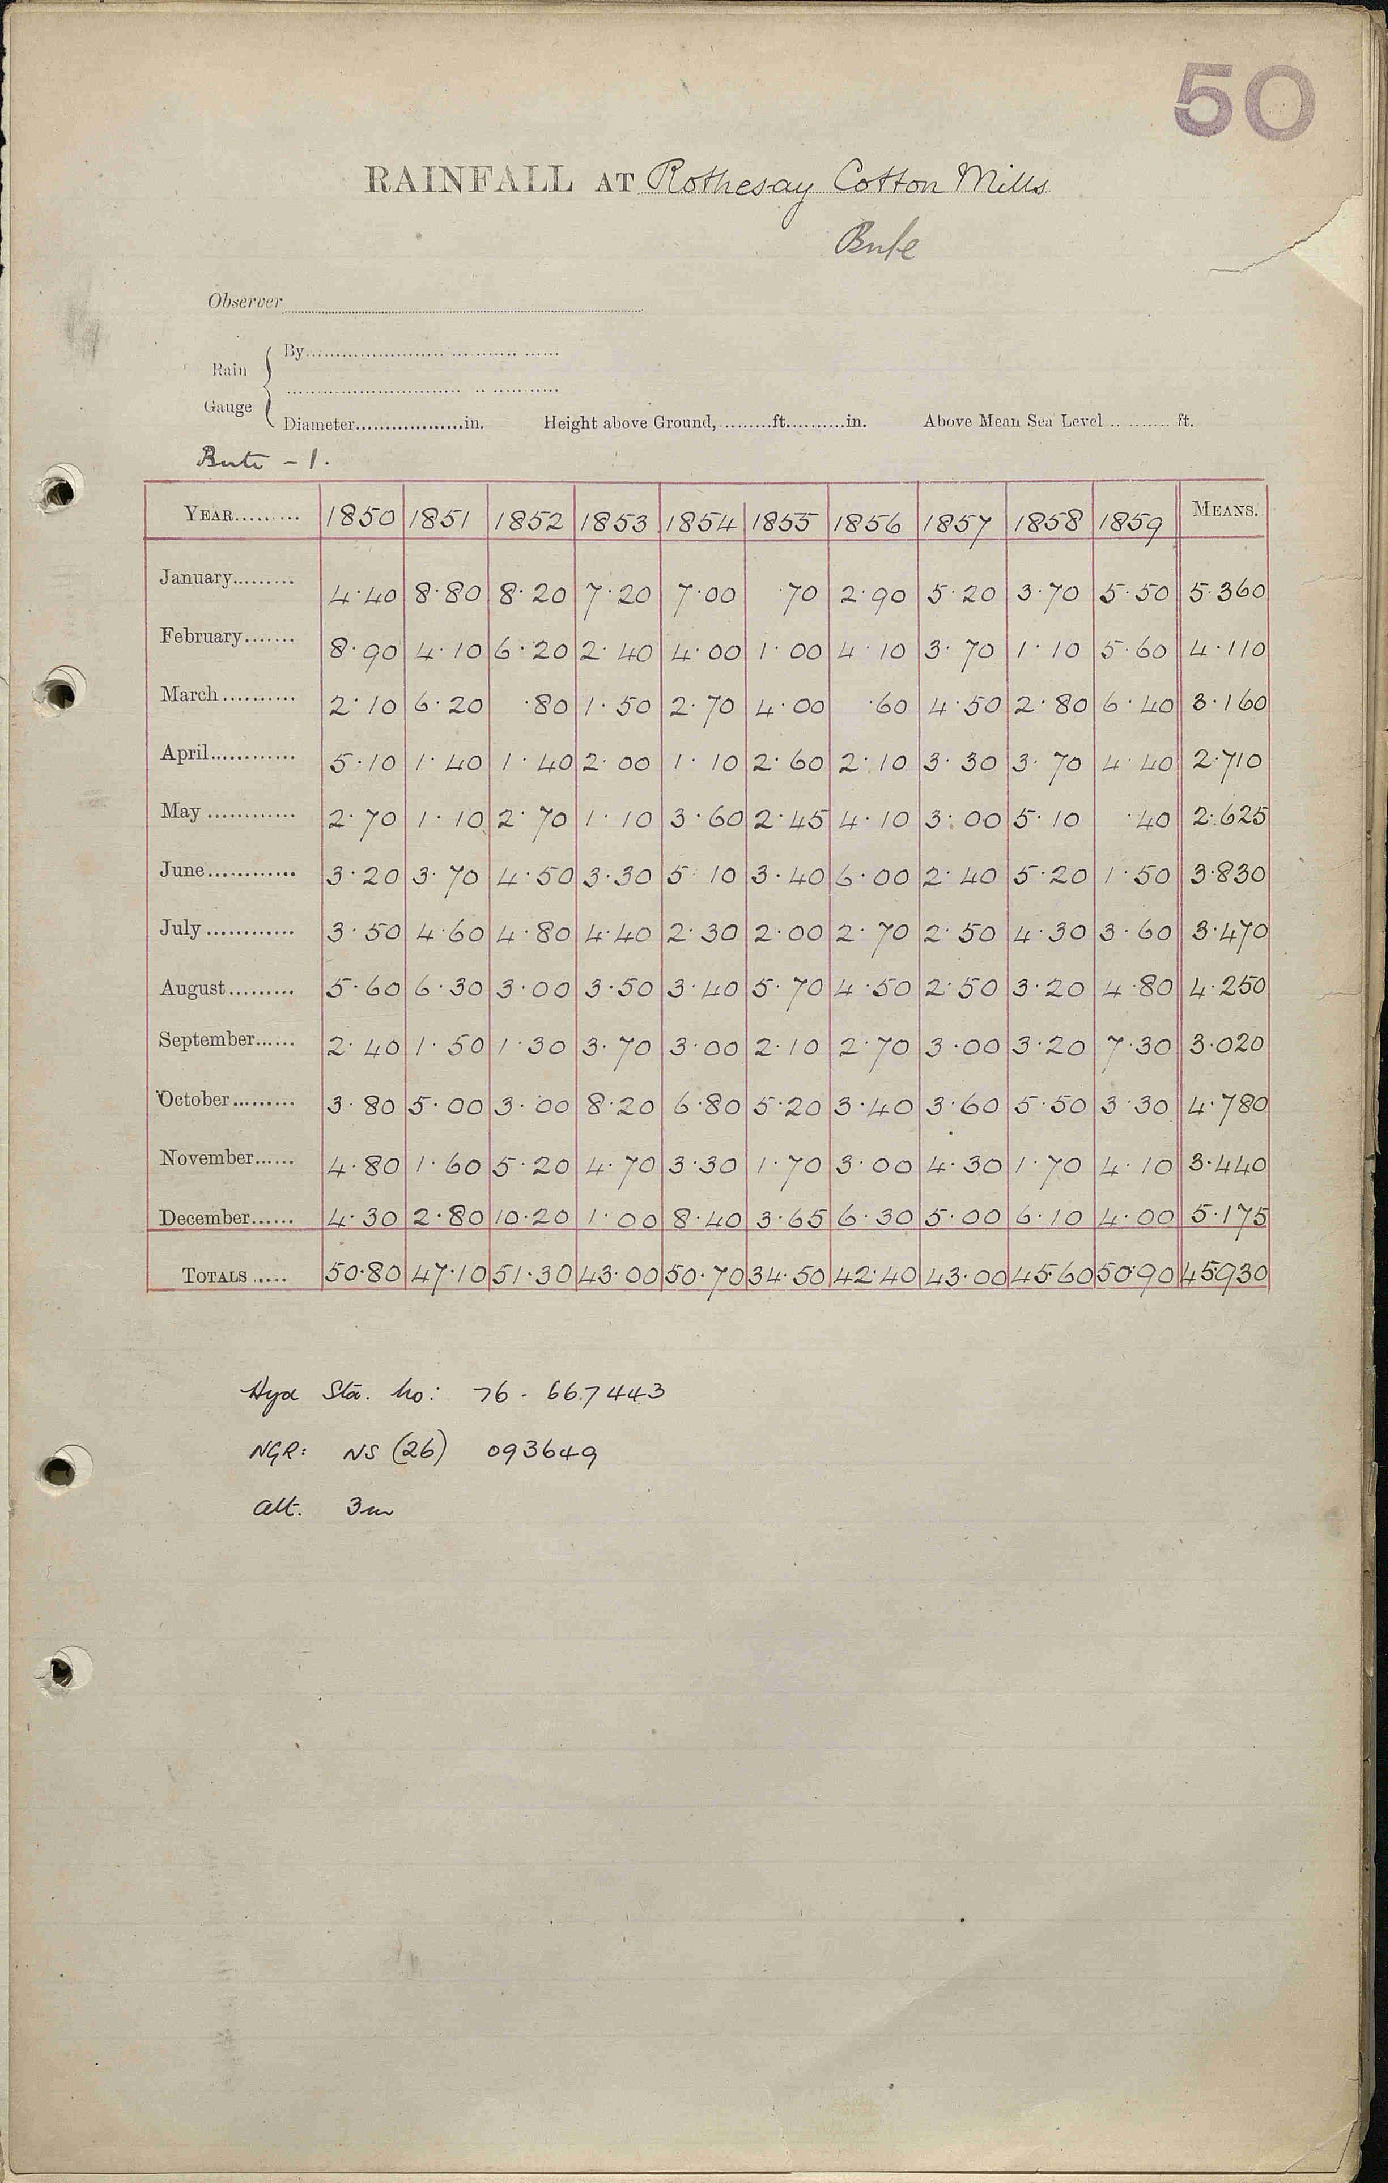 50
RAINFALL AT Rothesay Cotton Mills
Bute
Observer
Rain Gauge
By
Diameter in. Height above Ground, ft. in. Above Mean Sea Level ft.
Bute - 1.
YEAR 1850 1851 1852 1853 1854 1855 1856 1857 1858 1859 MEANS.
January 4.40 8.80 8.20 7.20 7.00 .70 2.90 5.20 3.70 5.50 5.360
February 8.90 4.10 6.20 2.40 4.00 1.00 4.10 3.70 1.10 5.60 4.110
March 2.10 6.20 .80 1.50 2.70 4.00 .60 4.50 2.80 6.40 3.160
April 5.10 1.40 1.40 2.00 1.10 2.60 2.10 3.30 3.70 4.40 2.710
May 2.70 1.10 2.70 1.10 3.60 2.45 4.10 3.00 5.10 .40 2.625
June 3.20 3.70 4.50 3.30 5.10 3.40 6.00 2.40 5.20 1.50 3.830
July 3.50 4.60 4.80 4.40 2.30 2.00 2.70 2.50 4.30 3.60 3.470
August 5.60 6.30 3.00 3.50 3.40 5.70 4.50 2.50 3.20 4.80 4.250
September 2.40 1.50 1.30 3.70 3.00 2.10 2.70 3.00 3.20 7.30 3.020
October 3.80 5.00 3.00 8.20 6.80 5.20 3.40 3.60 5.50 3.30 4.780
November 4.80 1.60 5.20 4.70 3.30 1.70 3.00 4.30 1.70 4.10 3.440
December 4.30 2.80 10.20 1.00 8.40 3.65 6.30 5.00 6.10 4.00 5.175
TOTALS 50.80 47.10 51.30 43.00 50.70 34.50 42.40 43.00 45.60 50.90 45930
Hyd Sta. No: 76 - 667443
NGR: NS (26) 093649
Alt. 3m